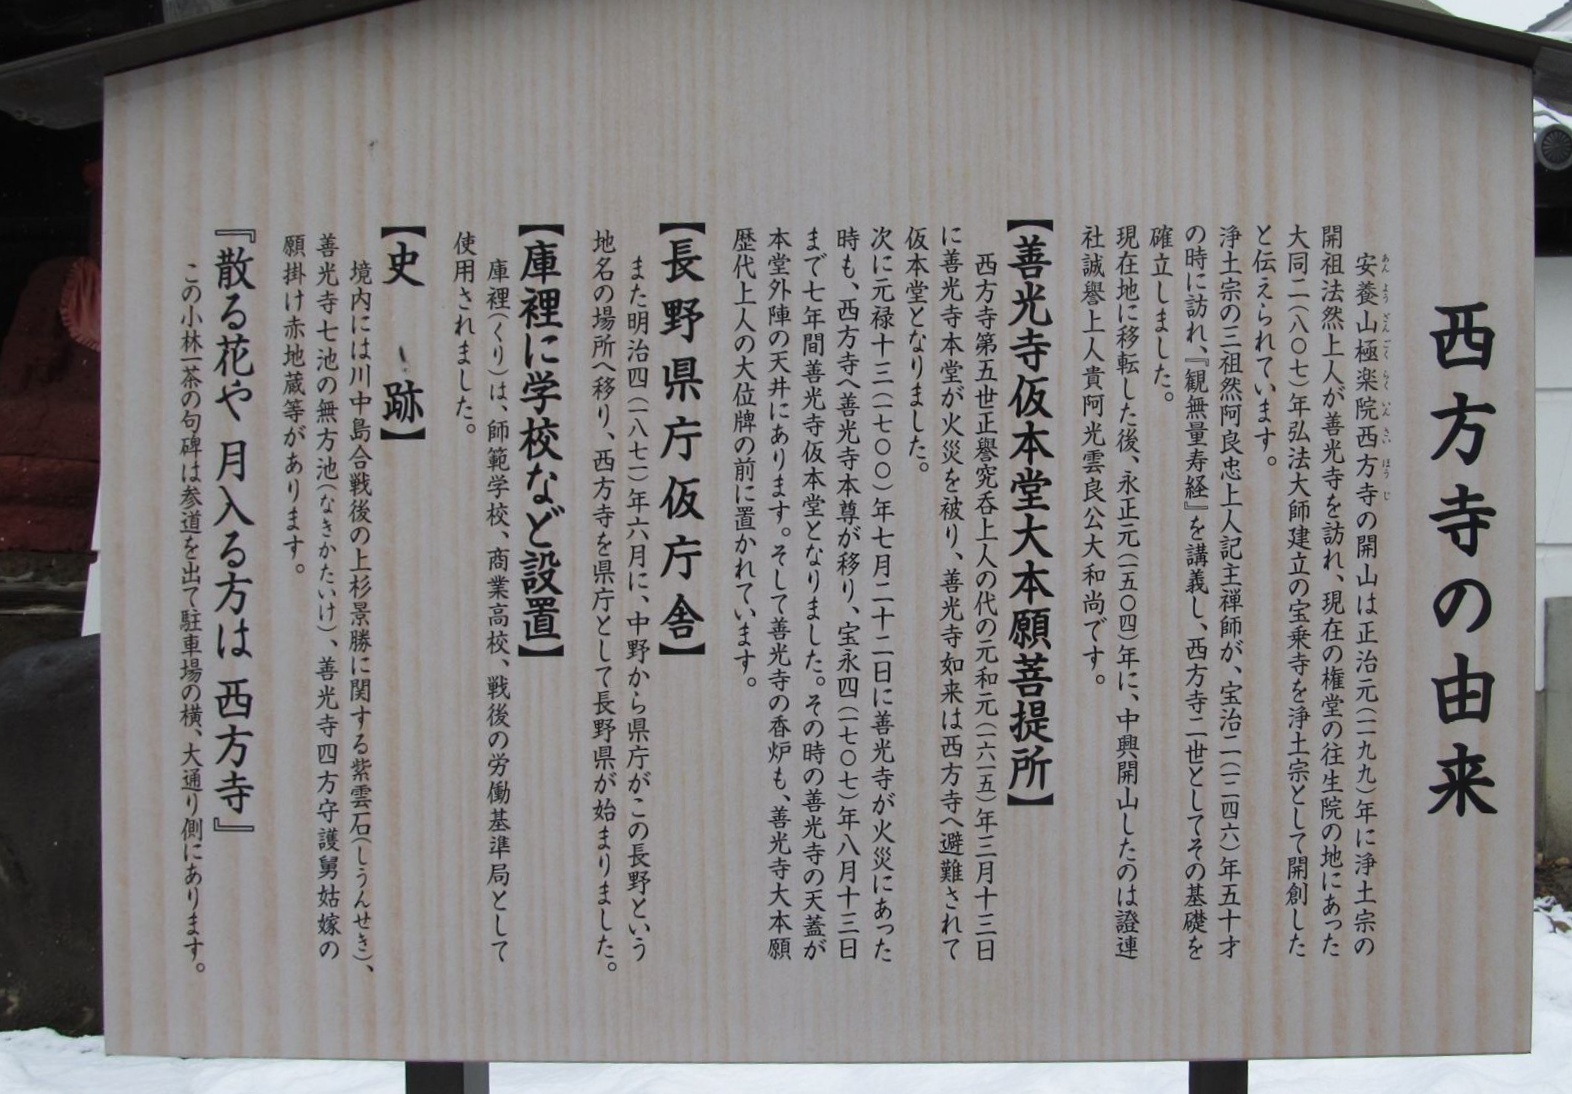 西方寺の由来
安養山極楽院西方寺の開山は正治元(一一九九)年に浄土宗の
開祖法然上人が善光寺を訪れ、現在の権堂の往生院の地にあった
大同二(八〇七)年弘法大師建立の宝乗寺を浄土宗として開創した
と伝えられています。
浄土宗の三祖然阿良忠上人記主禅師が、宝治二(一二四六)年五十才
の時に訪れ、『観無量寿経』を講義し、西方寺二世としてその基礎を
確立しました。
現在地に移転した後、永正元(一五〇四)年に、中興開山したのは證連
社誠譽上人貴阿光雲良公大和尚です。
【善光寺仮本堂大本願菩提所】
西方寺第五世正譽究呑上人の代の元和元(一六一五)年三月十三日
に善光寺本堂が火災を被り、善光寺如来は西方寺へ避難されて
仮本堂となりました。
次に元禄十三(一七〇〇)年七月二十二日に善光寺が火災にあった
時も、西方寺へ善光寺本尊が移り、宝永四(一七〇七)年八月十三日
まで七年間善光寺仮本堂となりました。その時の善光寺の天蓋が
本堂外陣の天井にあります。そして善光寺の香炉も、善光寺大本願
歴代上人の大位牌の前に置かれています。
【長野県庁仮庁舎】
また明治四(一八七一)年六月に、中野から県庁がこの長野という
地名の場所へ移り、西方寺を県庁として長野県が始まりました。
【庫裡に学校など設置】
庫裡(くり)は、師範学校、商業高校、戦後の労働基準局として
使用されました。
【史　跡】
境内には川中島合戦後の上杉景勝に関する紫雲石(しうんせき)、
善光寺七池の無方池(なきかたいけ)、善光寺四方守護舅姑嫁の
願掛け赤地蔵等があります。
『散る花や 月入る方は 西方寺』
この小林一茶の句碑は参道を出て駐車場の横、大通り側にあります。